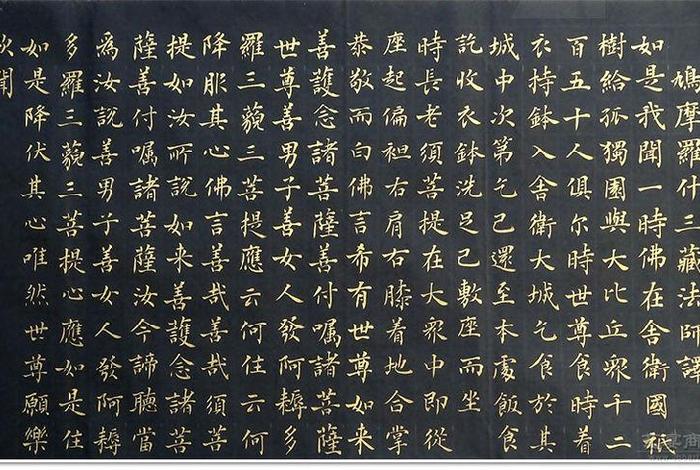 鳩摩羅什三藏法師譯
如是我聞一時佛在舍衛國祇
樹給孤獨園與大比丘眾千二
百五十人俱尒時世尊食時着
衣持鉢入舍衛大城乞食於其
城中次第乞已還至本處飯食
訖收衣鉢洗足已敷座而坐
時長老須菩提在大眾中即從
座起偏袒右肩右膝着地合掌
恭敬而白佛言希有世尊如來
善護念諸菩薩善付囑諸菩薩
世尊善男子善女人發阿耨多
羅三藐三菩提應云何住云何
降服其心佛言善哉善哉須菩
提如汝所說如來善護念諸菩
薩善付囑諸菩薩汝今諦聽當
爲汝說善男子善女人發阿耨
多羅三藐三菩提心應如是住
如是降伏其心唯然世尊願樂
欲聞